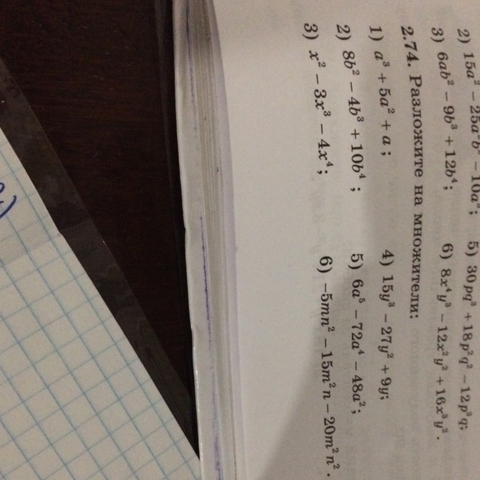 2) 15a² − 25a²b² − 10a³; 5) 30pq³ + 18p²q² − 12p³q;
3) 6ab² − 9b³ + 12b⁴; 6) 8x⁴y³ − 12x²y³ + 16x³y².
2.74. Разложите на множители:
1) a³ + 5a² + a; 4) 15y³ − 27y² + 9y;
2) 8b² − 4b³ + 10b⁴; 5) 6a⁵ − 72a⁴ − 48a²;
3) x² − 3x³ − 4x⁴; 6) −5mn² − 15m²n − 20m²n².